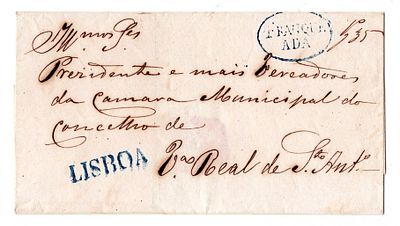 Illmos Srs
FRANQUE
ADA
Prezidente e mais Vereadores
da Camara Municipal do
Concelho de
LISBOA
Va Real de Sto Anto